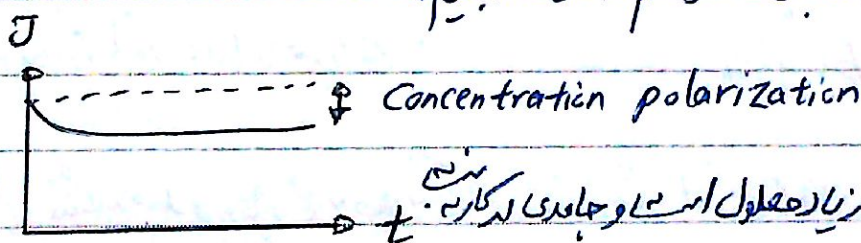 J
Concentration polarization
t
زیاد محلول است و جامدی در کار نیست.